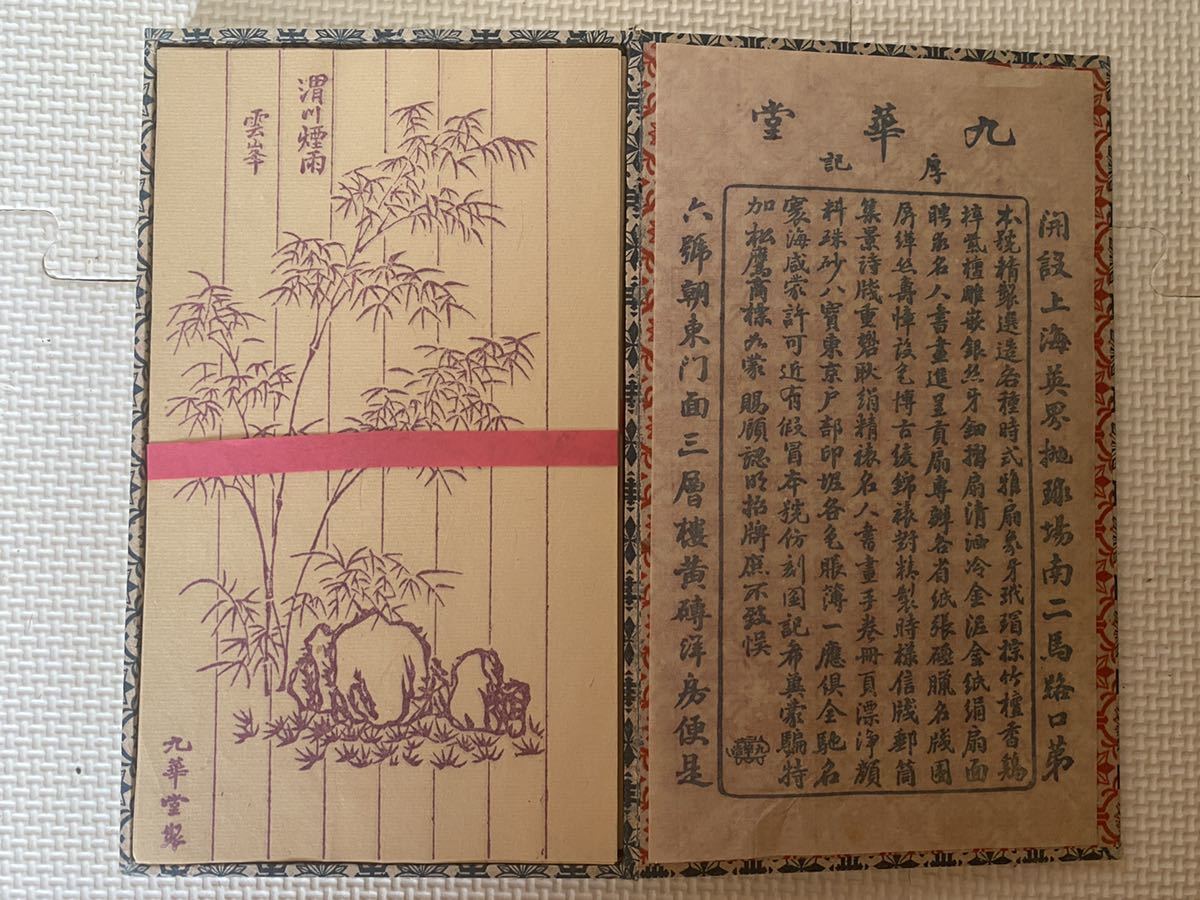 九華堂
厚記
開設上海英界抛球場南二馬路口第
本號精製選造各種時式雅扇象牙玳瑁棕竹檀香鷄
紫檀雕嵌銀絲牙鈿摺扇清油冷金泥金紙絹扇面
聘求名人書畫進呈貢扇專辦各省紙張硾臘名牋圍
屏緙丝壽幛設色博古綾錦裱對精製時樣信牋郵筒
集景詩牋重礬耿絹精裱名人書畫手卷冊頁漂浄顔
料珠砂八寶東京户部印坭各色賬薄一應俱全馳名
寰海咸蒙許可近有假冒本號仿刻圖記希兾蒙騙特
加松鷹商標如蒙 賜顧認明招牌庶不致悮
六號朝東门面三層樓黄磚洋房便是
渭川煙雨
雲峯
九華堂製